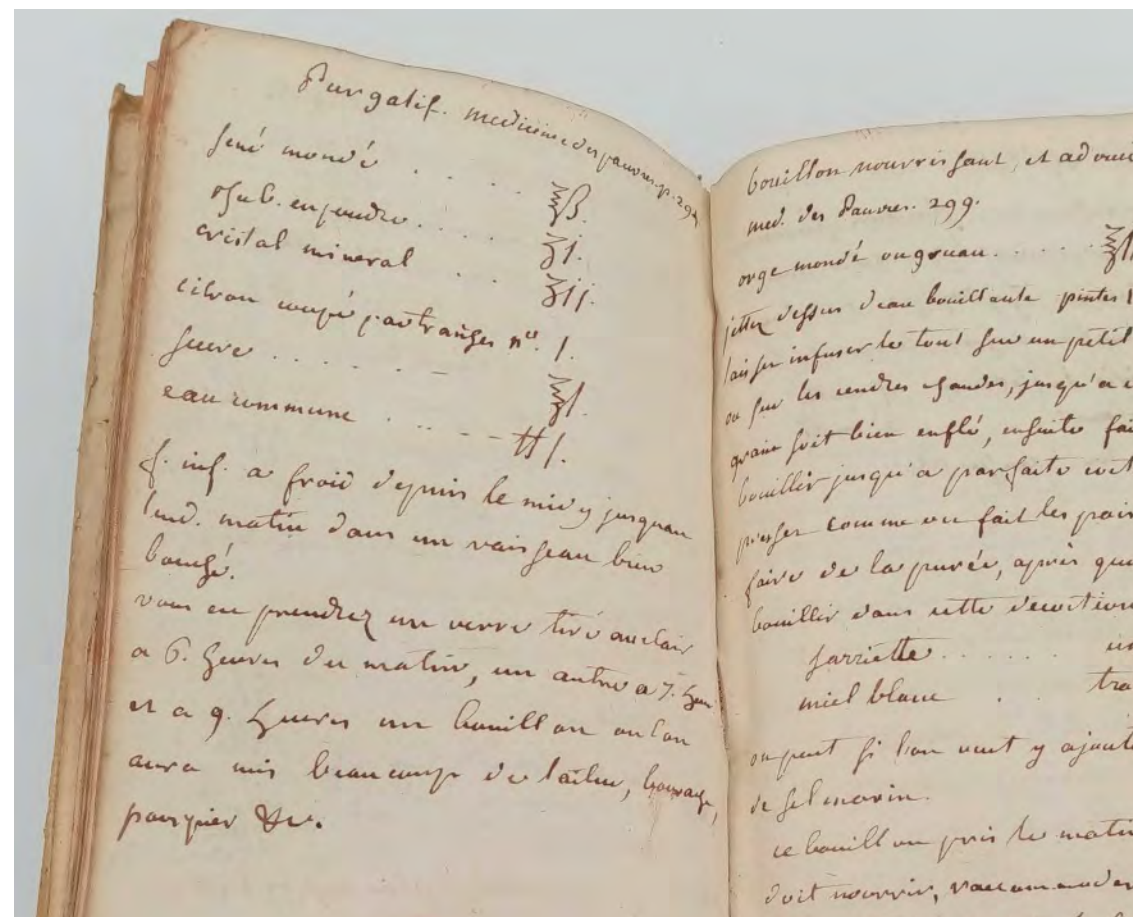 Purgatif. medecine des pauvres. p. 297
sené mondé . . . . . ℥ß.
rhub. en poudre . . . . . ʒj.
cristal mineral . . . ʒij.
citron coupé par tranches n.º 1.
sucre . . . . . . ℥j.
eau commune . . . . . ℔j.
f. inf. a froid depuis le midy jusqu'au
lend. matin dans un vaisseau bien
bouché.
vous en prendrez un verre tiré au clair
a 6. heures du matin, un autre a 7. heur
et a 9. heures un bouillon ou l'on
aura mis beaucoup de laitue, bourrache,
pourpier &c.
bouillon nourrissant, et adouci
med. des Pauvres. 299.
orge mondé ou gruau . . . . .
jettez dessus d'eau bouillante pintes
laisser infuser le tout sur un petit
ou sur les cendres chaudes, jusqu'a
grain soit bien enflé, ensuite fai
bouillir jusqu'a parfaite
passer comme on fait les pois
faire de la purée, après que
bouillir dans cette decoction
sarriette . . . . . . .
miel blanc . .
on peut si l'on veut y ajoute
de sel marin.
ce bouillon pris le matin
doit nourrir, raccommoder